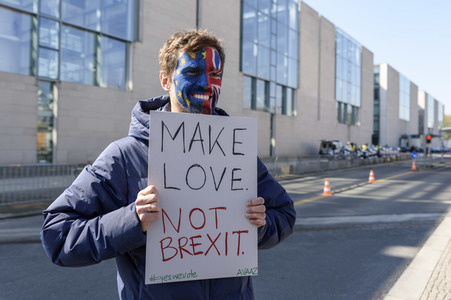 MAKE
LOVE.
NOT
BREXIT.
#yeswevote AVAAZ